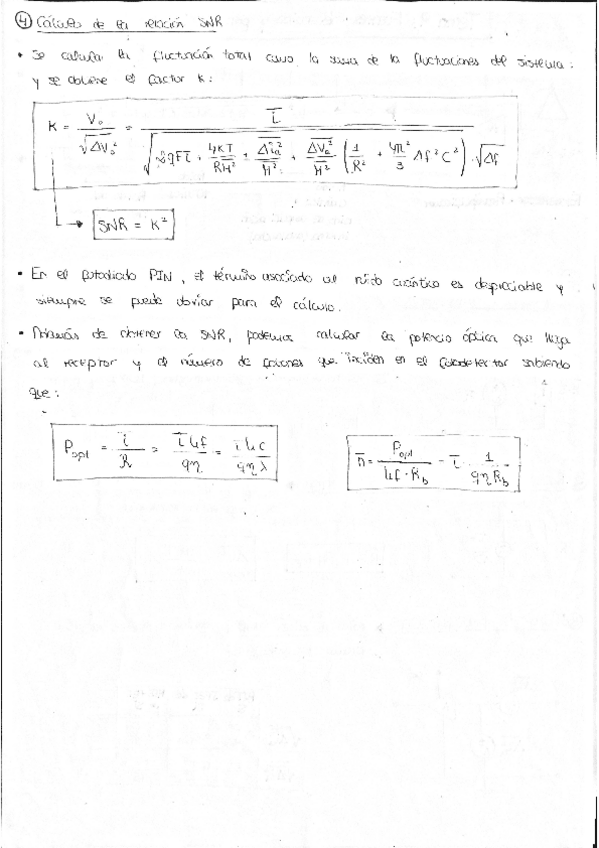 ④ Cálculo de la relación SNR
• Se calcula la fluctuación total como la suma de la fluctuaciones del sistema:
y se obtiene el factor K:
K = V₀ / √(ΔV₀²) = ī / ( √( 2qFī + 4KT/RM² + Δia²/M² + ΔVa²/M² ( 1/R² + 4π²/3 Δf²C² ) ) · √Δf )
SNR = K²
• En el fotodiodo PIN, el término asociado al ruido cuántico es despreciable y
siempre se puede obviar para el cálculo.
• Además de obtener la SNR, podemos calcular la potencia óptica que llega
al receptor y el número de fotones que inciden en el fotodetector sabiendo
que:
Popt = ī / R = ī hf / qη = ī hc / qηλ
n̄ = Popt / hf · Rb = ī · 1 / qηRb